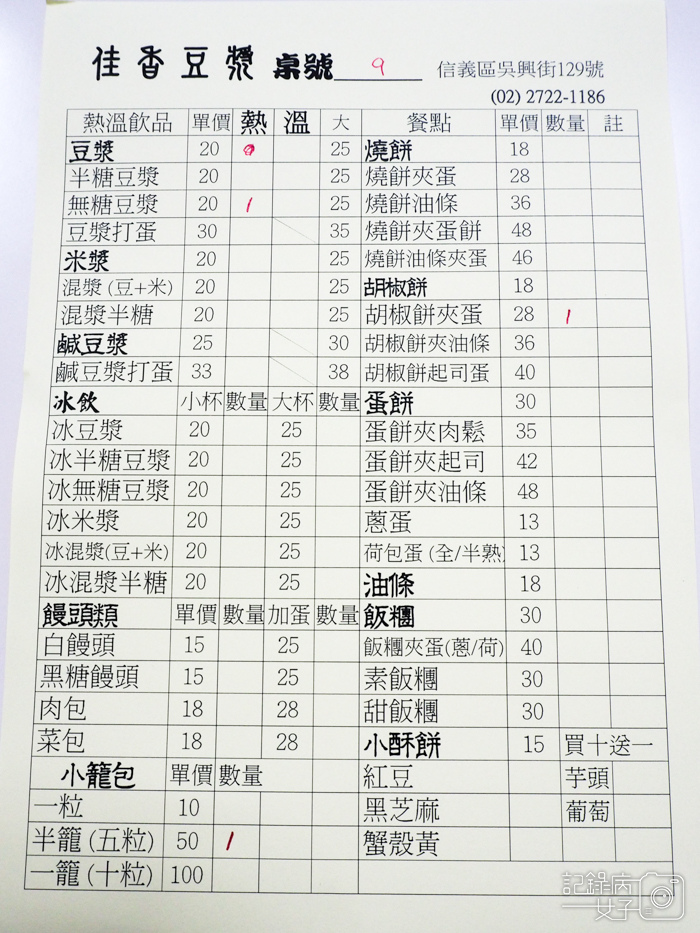 佳香豆漿 桌號 9 信義區吳興街129號
(02) 2722-1186
熱溫飲品 單價 熱 溫 大 餐點 單價 數量 註
豆漿 20 25 燒餅 18
半糖豆漿 20 25 燒餅夾蛋 28
無糖豆漿 20 1 25 燒餅油條 36
豆漿打蛋 30 35 燒餅夾蛋餅 48
米漿 20 25 燒餅油條夾蛋 46
混漿(豆+米) 20 25 胡椒餅 18
混漿半糖 20 25 胡椒餅夾蛋 28 1
鹹豆漿 25 30 胡椒餅夾油條 36
鹹豆漿打蛋 33 38 胡椒餅起司蛋 40
冰飲 小杯 數量 大杯 數量 蛋餅 30
冰豆漿 20 25 蛋餅夾肉鬆 35
冰半糖豆漿 20 25 蛋餅夾起司 42
冰無糖豆漿 20 25 蛋餅夾油條 48
冰米漿 20 25 蔥蛋 13
冰混漿(豆+米) 20 25 荷包蛋(全/半熟) 13
冰混漿半糖 20 25 油條 18
饅頭類 單價 數量 加蛋 數量 飯糰 30
白饅頭 15 25 飯糰夾蛋(蔥/荷) 40
黑糖饅頭 15 25 素飯糰 30
肉包 18 28 甜飯糰 30
菜包 18 28 小酥餅 15 買十送一
小籠包 單價 數量 紅豆 芋頭
一粒 10 黑芝麻 葡萄
半籠(五粒) 50 1 蟹殼黃
一籠(十粒) 100
記錄病女子